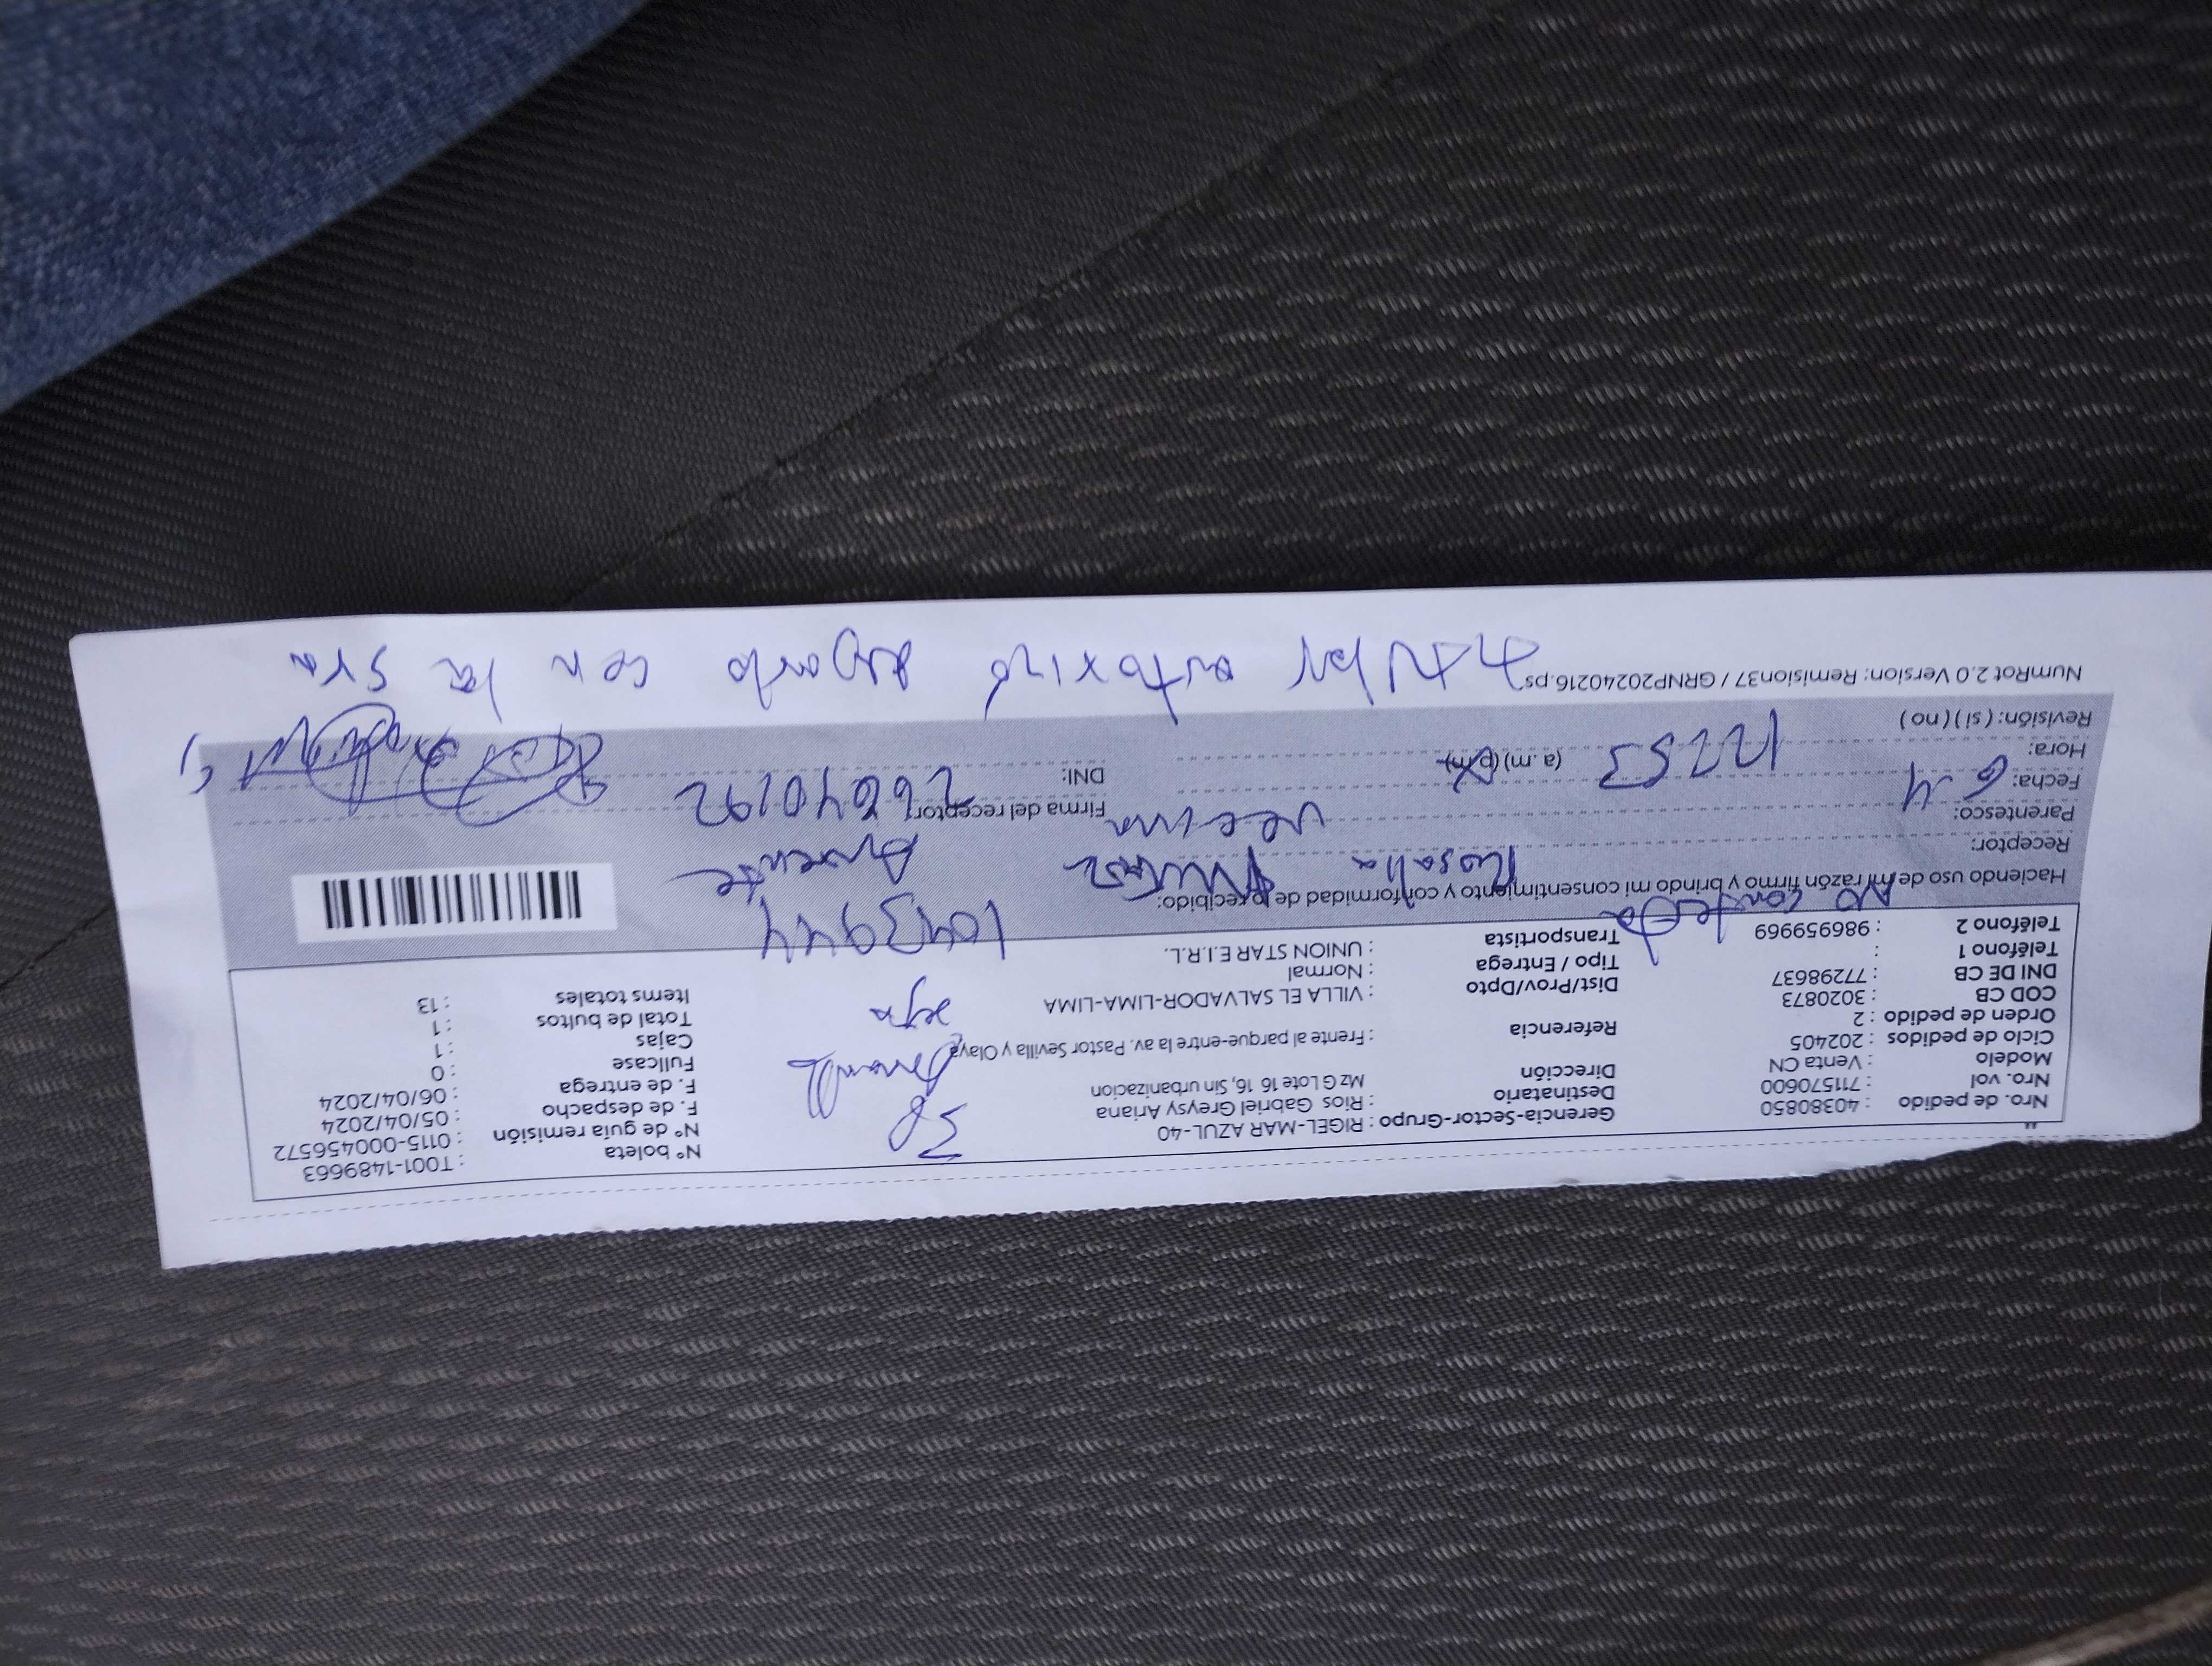 Nro. de pedido : 40380850
Nro. vol : 711570600
Modelo : Venta CN
Ciclo de pedidos : 202405
Orden de pedido : 2
COD CB : 3020873
DNI DE CB : 77298637
Teléfono 1 :
Teléfono 2 : 986959969
Gerencia-Sector-Grupo : RIGEL-MAR AZUL-40
Destinatario : Rios Gabriel Greysy Ariana
Dirección Mz G Lote 16 16, Sin urbanizacion
Referencia : Frente al parque-entre la av. Pastor Sevilla y Olaya
Dist/Prov/Dpto : VILLA EL SALVADOR-LIMA-LIMA
Tipo / Entrega : Normal
Transportista : UNION STAR E.I.R.L.
N° boleta : T001-1489663
N° de guía remisión : 0115-000456572
F. de despacho : 05/04/2024
F. de entrega : 06/04/2024
Fullcase : 0
Cajas : 1
Total de bultos : 1
Items totales : 13
No contesta
Haciendo uso de mi razón firmo y brindo mi consentimiento y conformidad de lo recibido:
Receptor: Rosalia
Parentesco: vecina
Fecha: 6 4
Hora: 12:53 (a.m) (p.m)
Revisión: (si) (no)
Firma del receptor:
DNI: 26640192
NumRot 2.0 Version: Remision37 / GRNP20240216.ps
con la sra